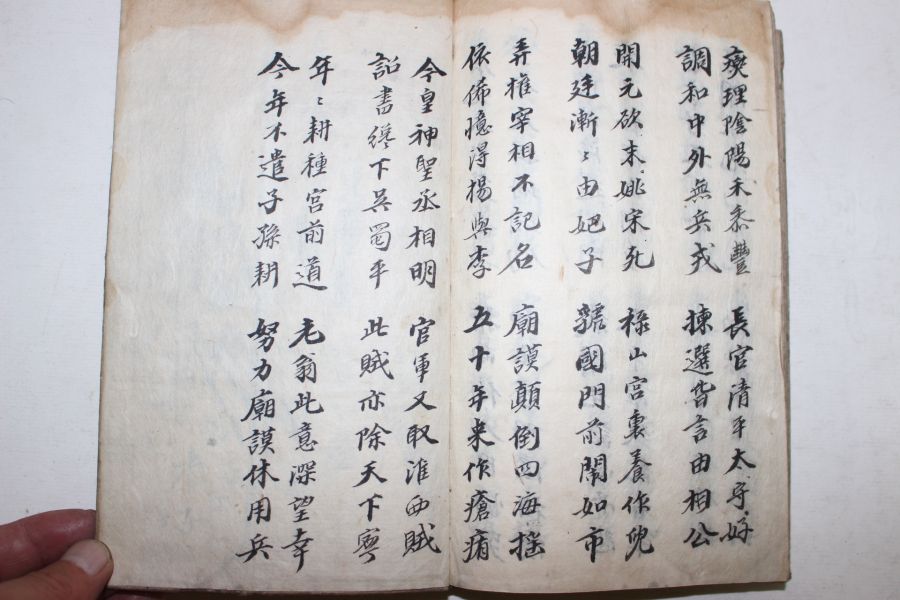 燮理陰陽禾黍豐
調和中外無兵戎
長官清平太守好
揀選皆言由相公
開元欲末姚宋死
朝廷漸〻由妃子
祿山宮裏養作兒
虢國門前鬧如市
弄權宰相不記名
依俙憶得楊與李
廟謨顛倒四海搖
五十年来作瘡痏
今皇神聖丞相明
詔書纔下吳蜀平
官軍又取淮西賊
此賊亦除天下寧
年〻耕種宮前道
今年不遣子孫耕
老翁此意深望幸
努力廟謨休用兵